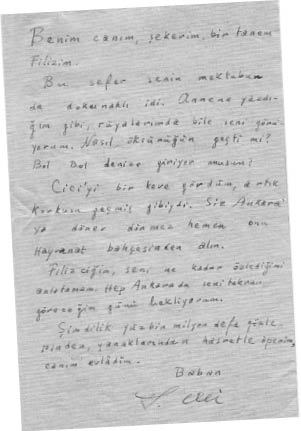 Benim canım, şekerim, bir tanem
Filizim.
Bu sefer senin mektubun
da dokunaklı idi. Annene yazdı-
ğım gibi, rüyalarımda bile seni görü-
yorum. Nasıl, öksürüğün geçti mi?
Bol Bol denize giriyor musun?
Cici'yi bir kere gördüm, artık
korkusu geçmiş gibiydi. Siz Ankara'
ya döner dönmez hemen onu
Hayvanat bahçesinden alın.
Filizciğim, seni ne kadar özlediğimi
anlatamam. Hep Ankarada seni tekrar
göreceğim günü bekliyorum.
Şimdilik yüzbin milyon defa gözle-
rinden, yanaklarından hasretle öperim,
canım evlâdım.
Baban
S. Ali